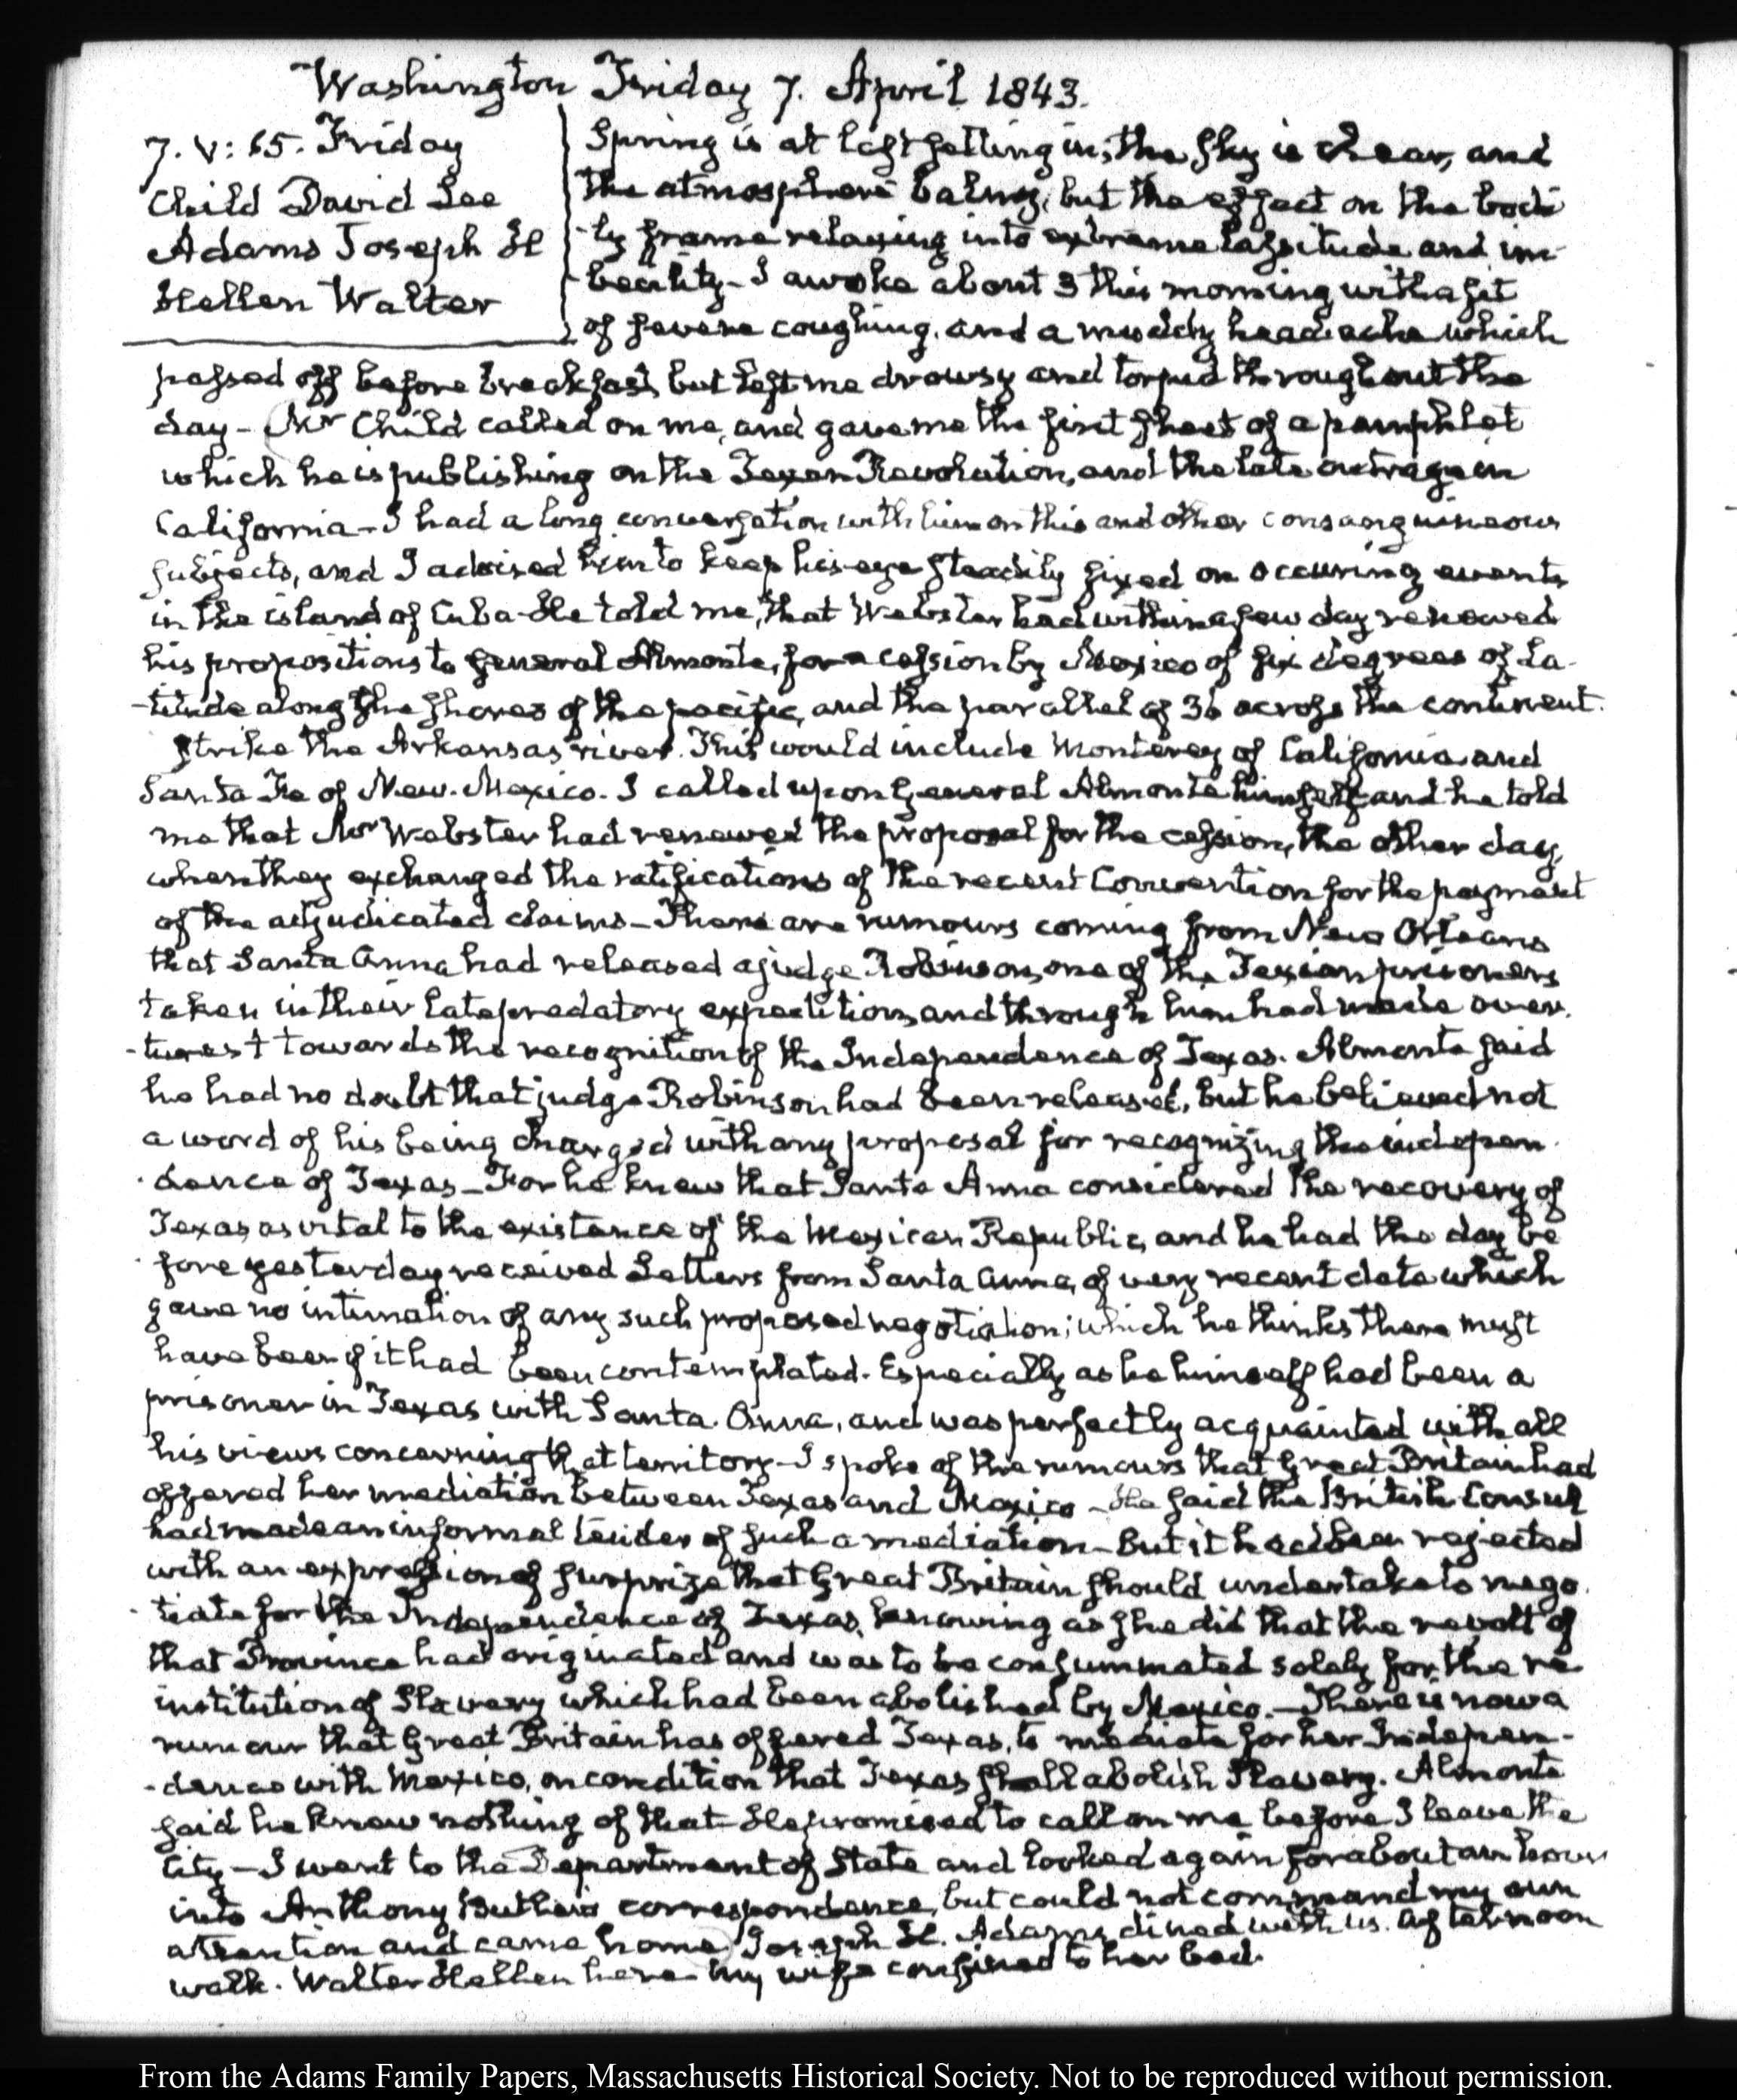 Washington Friday 7. April 1843.
7. V: 15. Friday
Child David Lee
Adams Joseph H
Hellen Walter
Spring is at last setting in; the sky is clear, and
the atmosphere balmy; but the effect on the bodi
-ly frame relaxing into extreme lassitude and im-
becility- I awoke about 3 this morning with a fit
of severe coughing, and a muddy head-ache which
passed off before breakfast, but left me drowsy and torpid throughout the
day - Mr Child called on me, and gave me the first sheet of a pamphlet
which he is publishing on the Texan Revolution, and the late outrage in
California - I had a long conversation with him on this and other consanguineous
subjects, and I advised him to keep his eye steadily fixed on occurring events
in the island of Cuba- He told me, that Webster had within a few day renewed
his propositions to General Almonte, for a cession by Mexico of six degrees of La-
-titude along the shores of the pacific, and the parallel of 36 across the continent.
strike the Arkansas river. This would include Monterey of California and
Santa Fe of New-Mexico. I called upon General Almonte himself, and he told
me that Mr Webster had renewed the proposal for the cession, the other day,
when they exchanged the ratifications of the recent Convention for the payment
of the adjudicated claims - There are rumours coming from New Orleans
that Santa Anna had released a judge Robinson, one of the Texian prisoners
taken in their late predatory expedition, and through him had made over-
-tures towards the recognition of the Independence of Texas. Almonte said
he had no doubt that judge Robinson had been released, but he believed not
a word of his being charged with any proposal for recognizing the indepen-
-dence of Texas - For he knew that Santa Anna considered the recovery of
Texas as vital to the existence of the Mexican Republic, and he had the day be
-fore yesterday received Letters from Santa Anna, of very recent date which
gave no intimation of any such proposed negotiation; which he thinks there must
have been if it had been contemplated. Especially as he himself had been a
prisoner in Texas with Santa Anna, and was perfectly acquainted with all
his views concerning that territory - I spoke of the rumours that Great Britain had
offered her mediation between Texas and Mexico - He said the British Consul
had made an informal tender of such a mediation - But it had been rejected
with an expression of surprize that Great Britain should undertake to nego-
-tiate for the Independence of Texas, knowing as she did that the revolt of
that Province had originated and was to be consummated solely for the re
institution of Slavery which had been abolished by Mexico. - There is now a
rumour that Great Britain has offered Texas, to mediate for her Indepen-
-dence with Mexico, on condition that Texas shall abolish Slavery. Almonte
said he knew nothing of that- He promised to call on me before I leave the
City - I went to the Department of State and looked again for about an hour
into Anthony Butler's correspondence, but could not command my own
attention and came home Joseph H. Adams dined with us. Afternoon
walk. Walter Hellen here My wife confined to her bed.
From the Adams Family Papers, Massachusetts Historical Society. Not to be reproduced without permission.